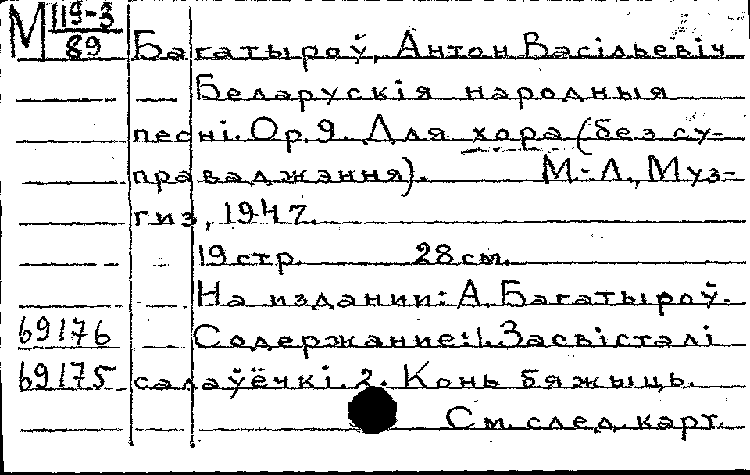 М 119-3
89
Багатыроў, Антон Васільевіч
Беларускія народныя
песні. Ор. 9. Для хора (без су-
праваджання). М.-Л., Муз-
гиз, 1947.
19 стр. 28 см.
На издании: А. Багатыроў.
69176 Содержание: 1. Засвісталі
69175 салаўёчкі. 2. Конь бяжыць.
См. след. карт.